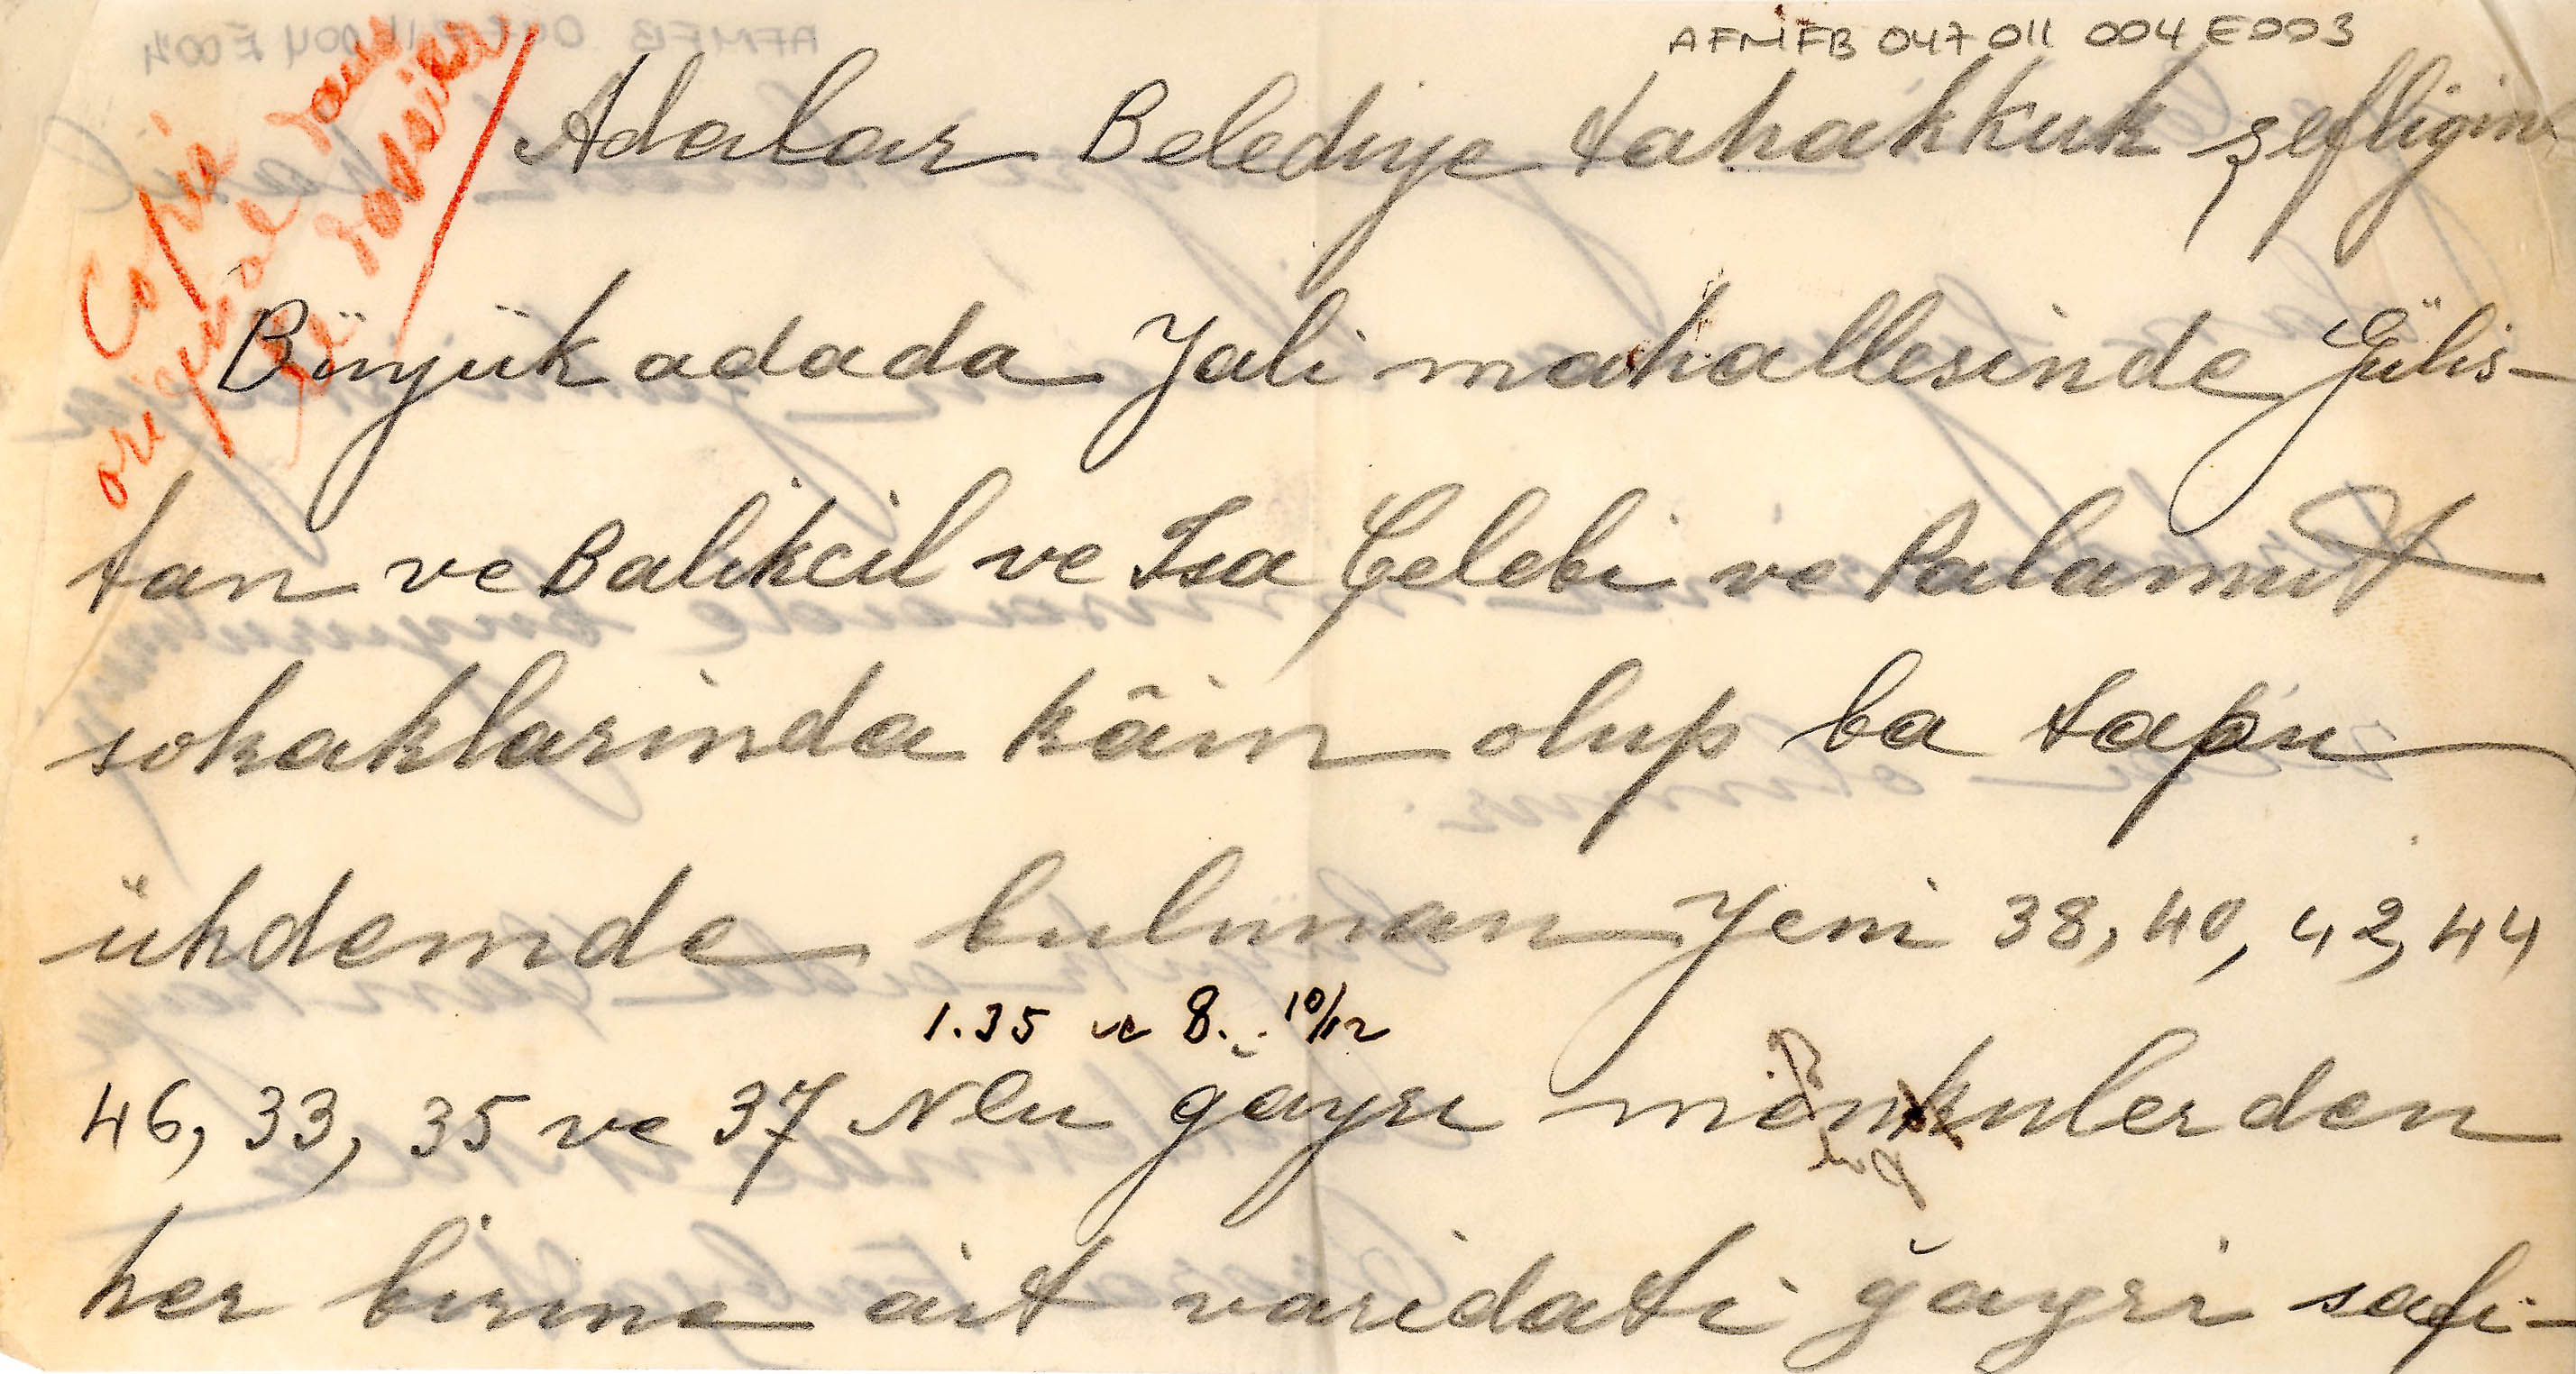 AFMFB 047 011 004 E003
Copie
original dans
le dossier
Adalar Belediye tahakkuk şefligine
Büyük adada Yali mahallesinde Gülis-
tan ve Balikcil ve Isa Çelebi ve Palamut
sokaklarinda kâin olup ba tapu
ühdemde bulunan Yeni 38, 40, 42, 44
1.35 ve 8... 10/12
46, 33, 35 ve 37 Nlu ğayri menkulerden
her birine ait varidati ğayri safi-